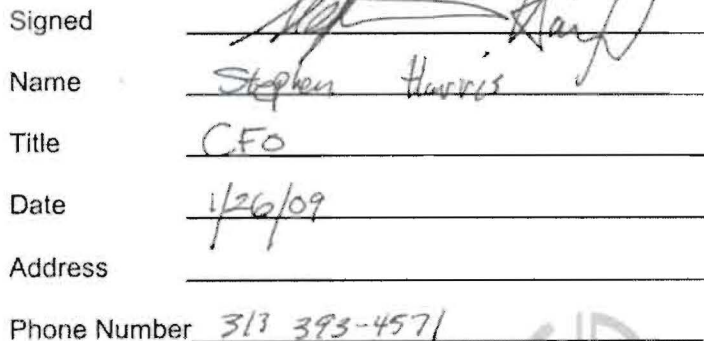 Signed
Name Stephen Harris
Title CFO
Date 1/26/09
Address
Phone Number 313 393-4571